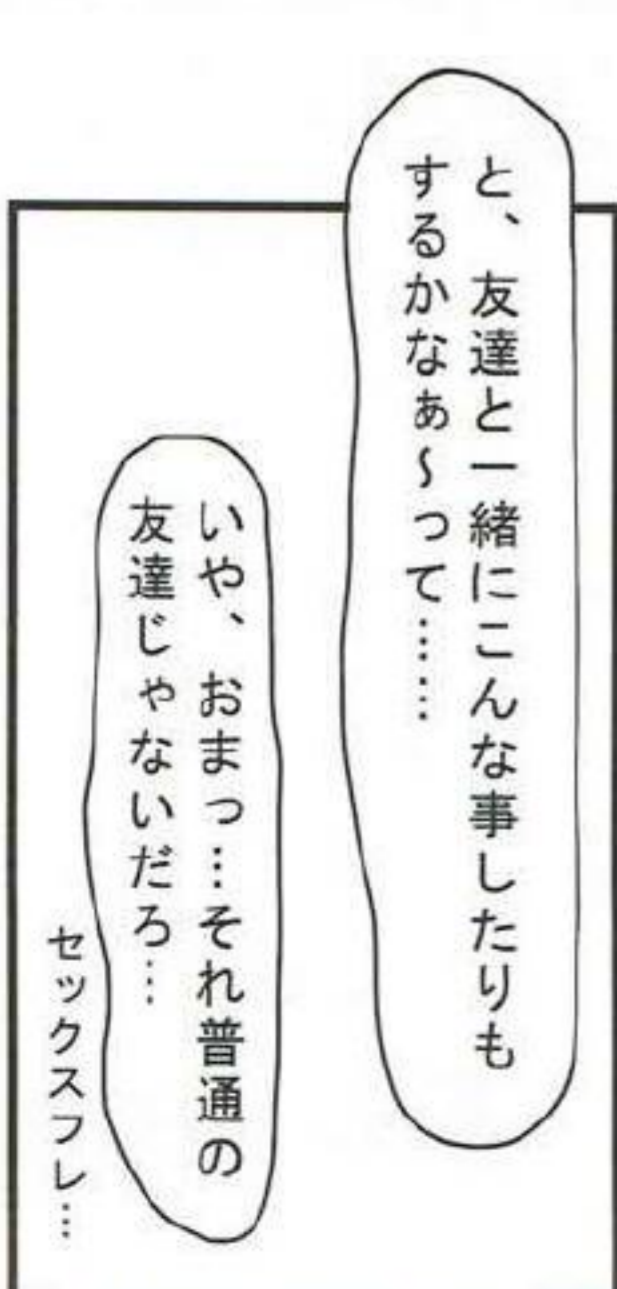 と、友達と一緒にこんな事したりも
するかなぁ~って……
いや、おまっ…それ普通の
友達じゃないだろ…
セックスフレ…